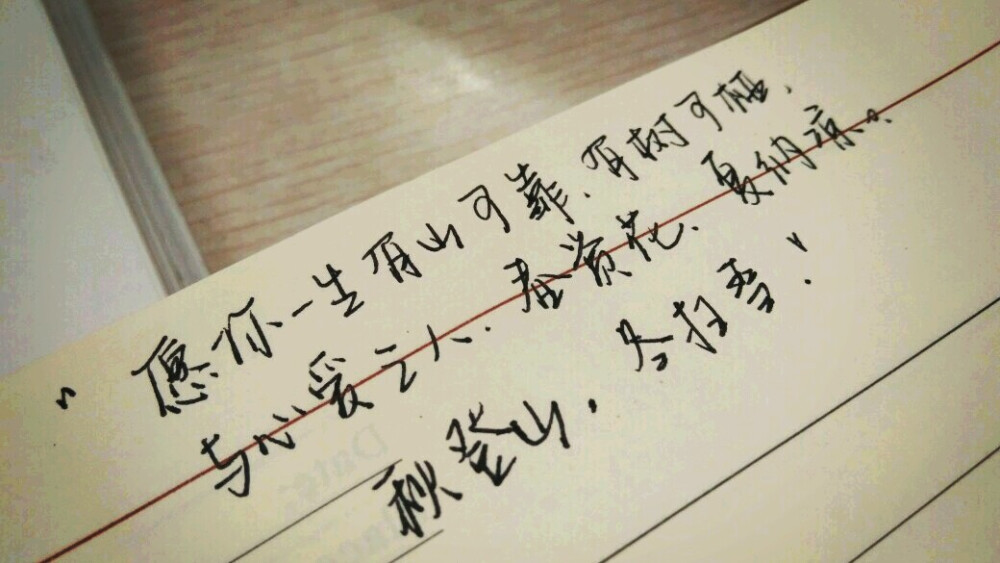 “愿你一生有山可靠，有树可栖，
与心爱之人，春赏花、夏纳凉。
秋登山，冬扫雪！”
Date: